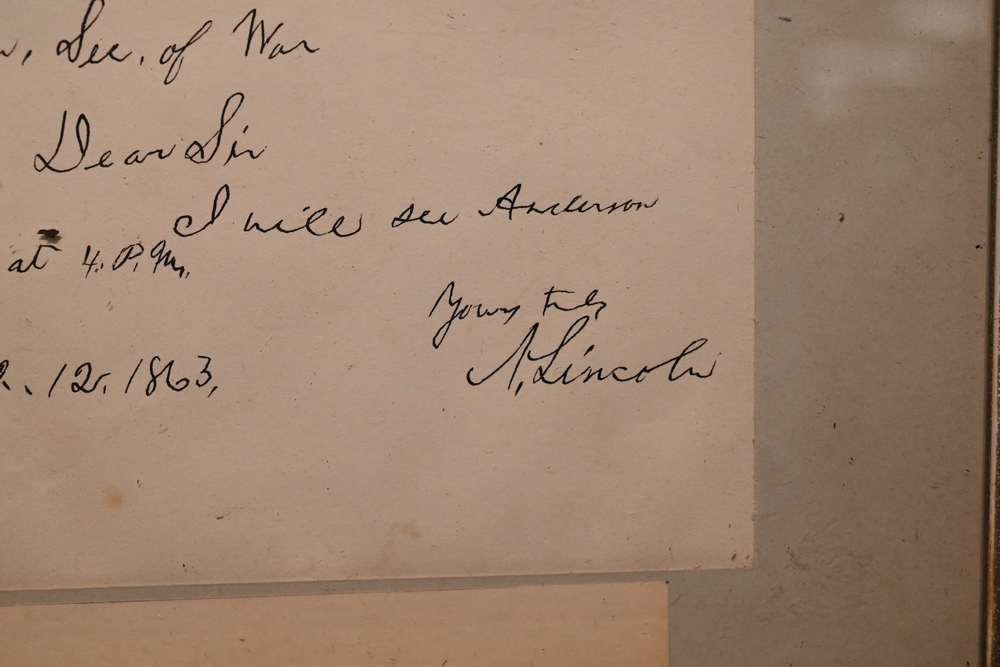 Sec. of War
Dear Sir
I will see Anderson
at 4. P.M.
Yours truly
A. Lincoln
12. 1863.